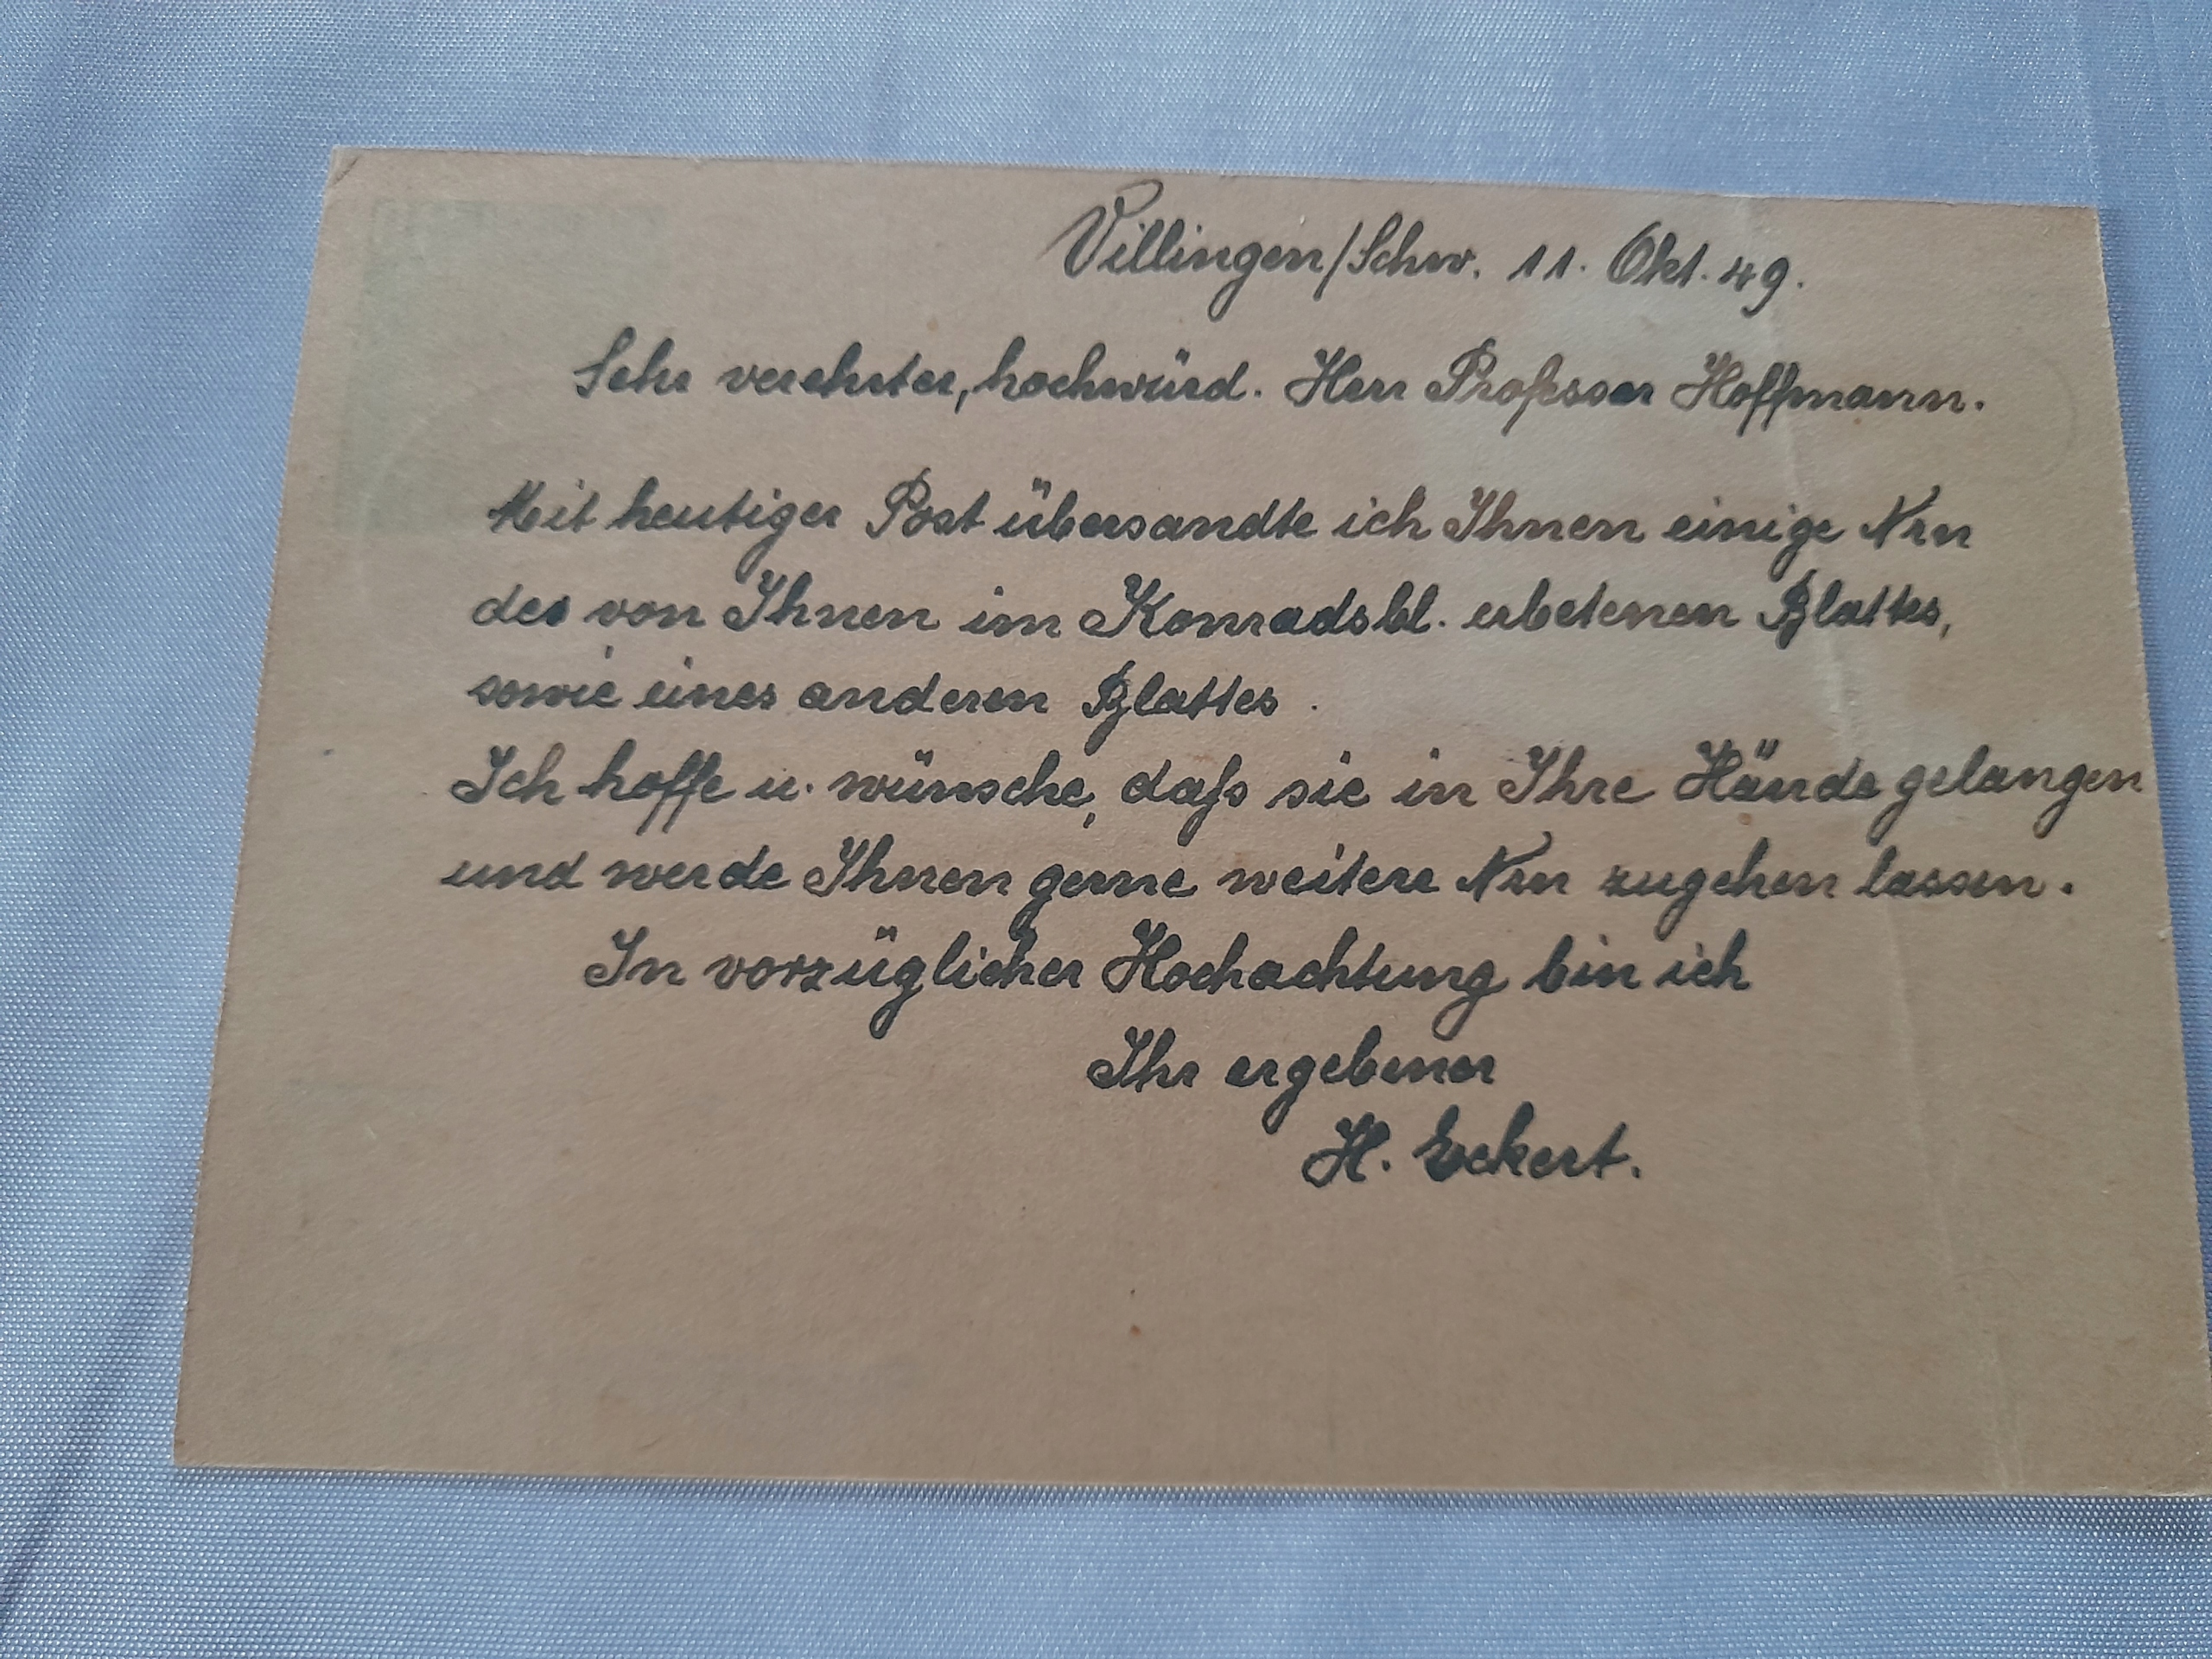 Villingen/Schw. 11. Okt. 49.
Sehr verehrter, hochwürd. Herr Professor Hoffmann.
Mit heutiger Post übersandte ich Ihnen einige Nrn
des von Ihnen im Konradsbl. erbetenen Blattes,
sowie eines anderen Blattes.
Ich hoffe u. wünsche, daß sie in Ihre Hände gelangen
und werde Ihnen gerne weitere Nrn zugehen lassen.
In vorzüglicher Hochachtung bin ich
Ihr ergebener
H. Eckert.